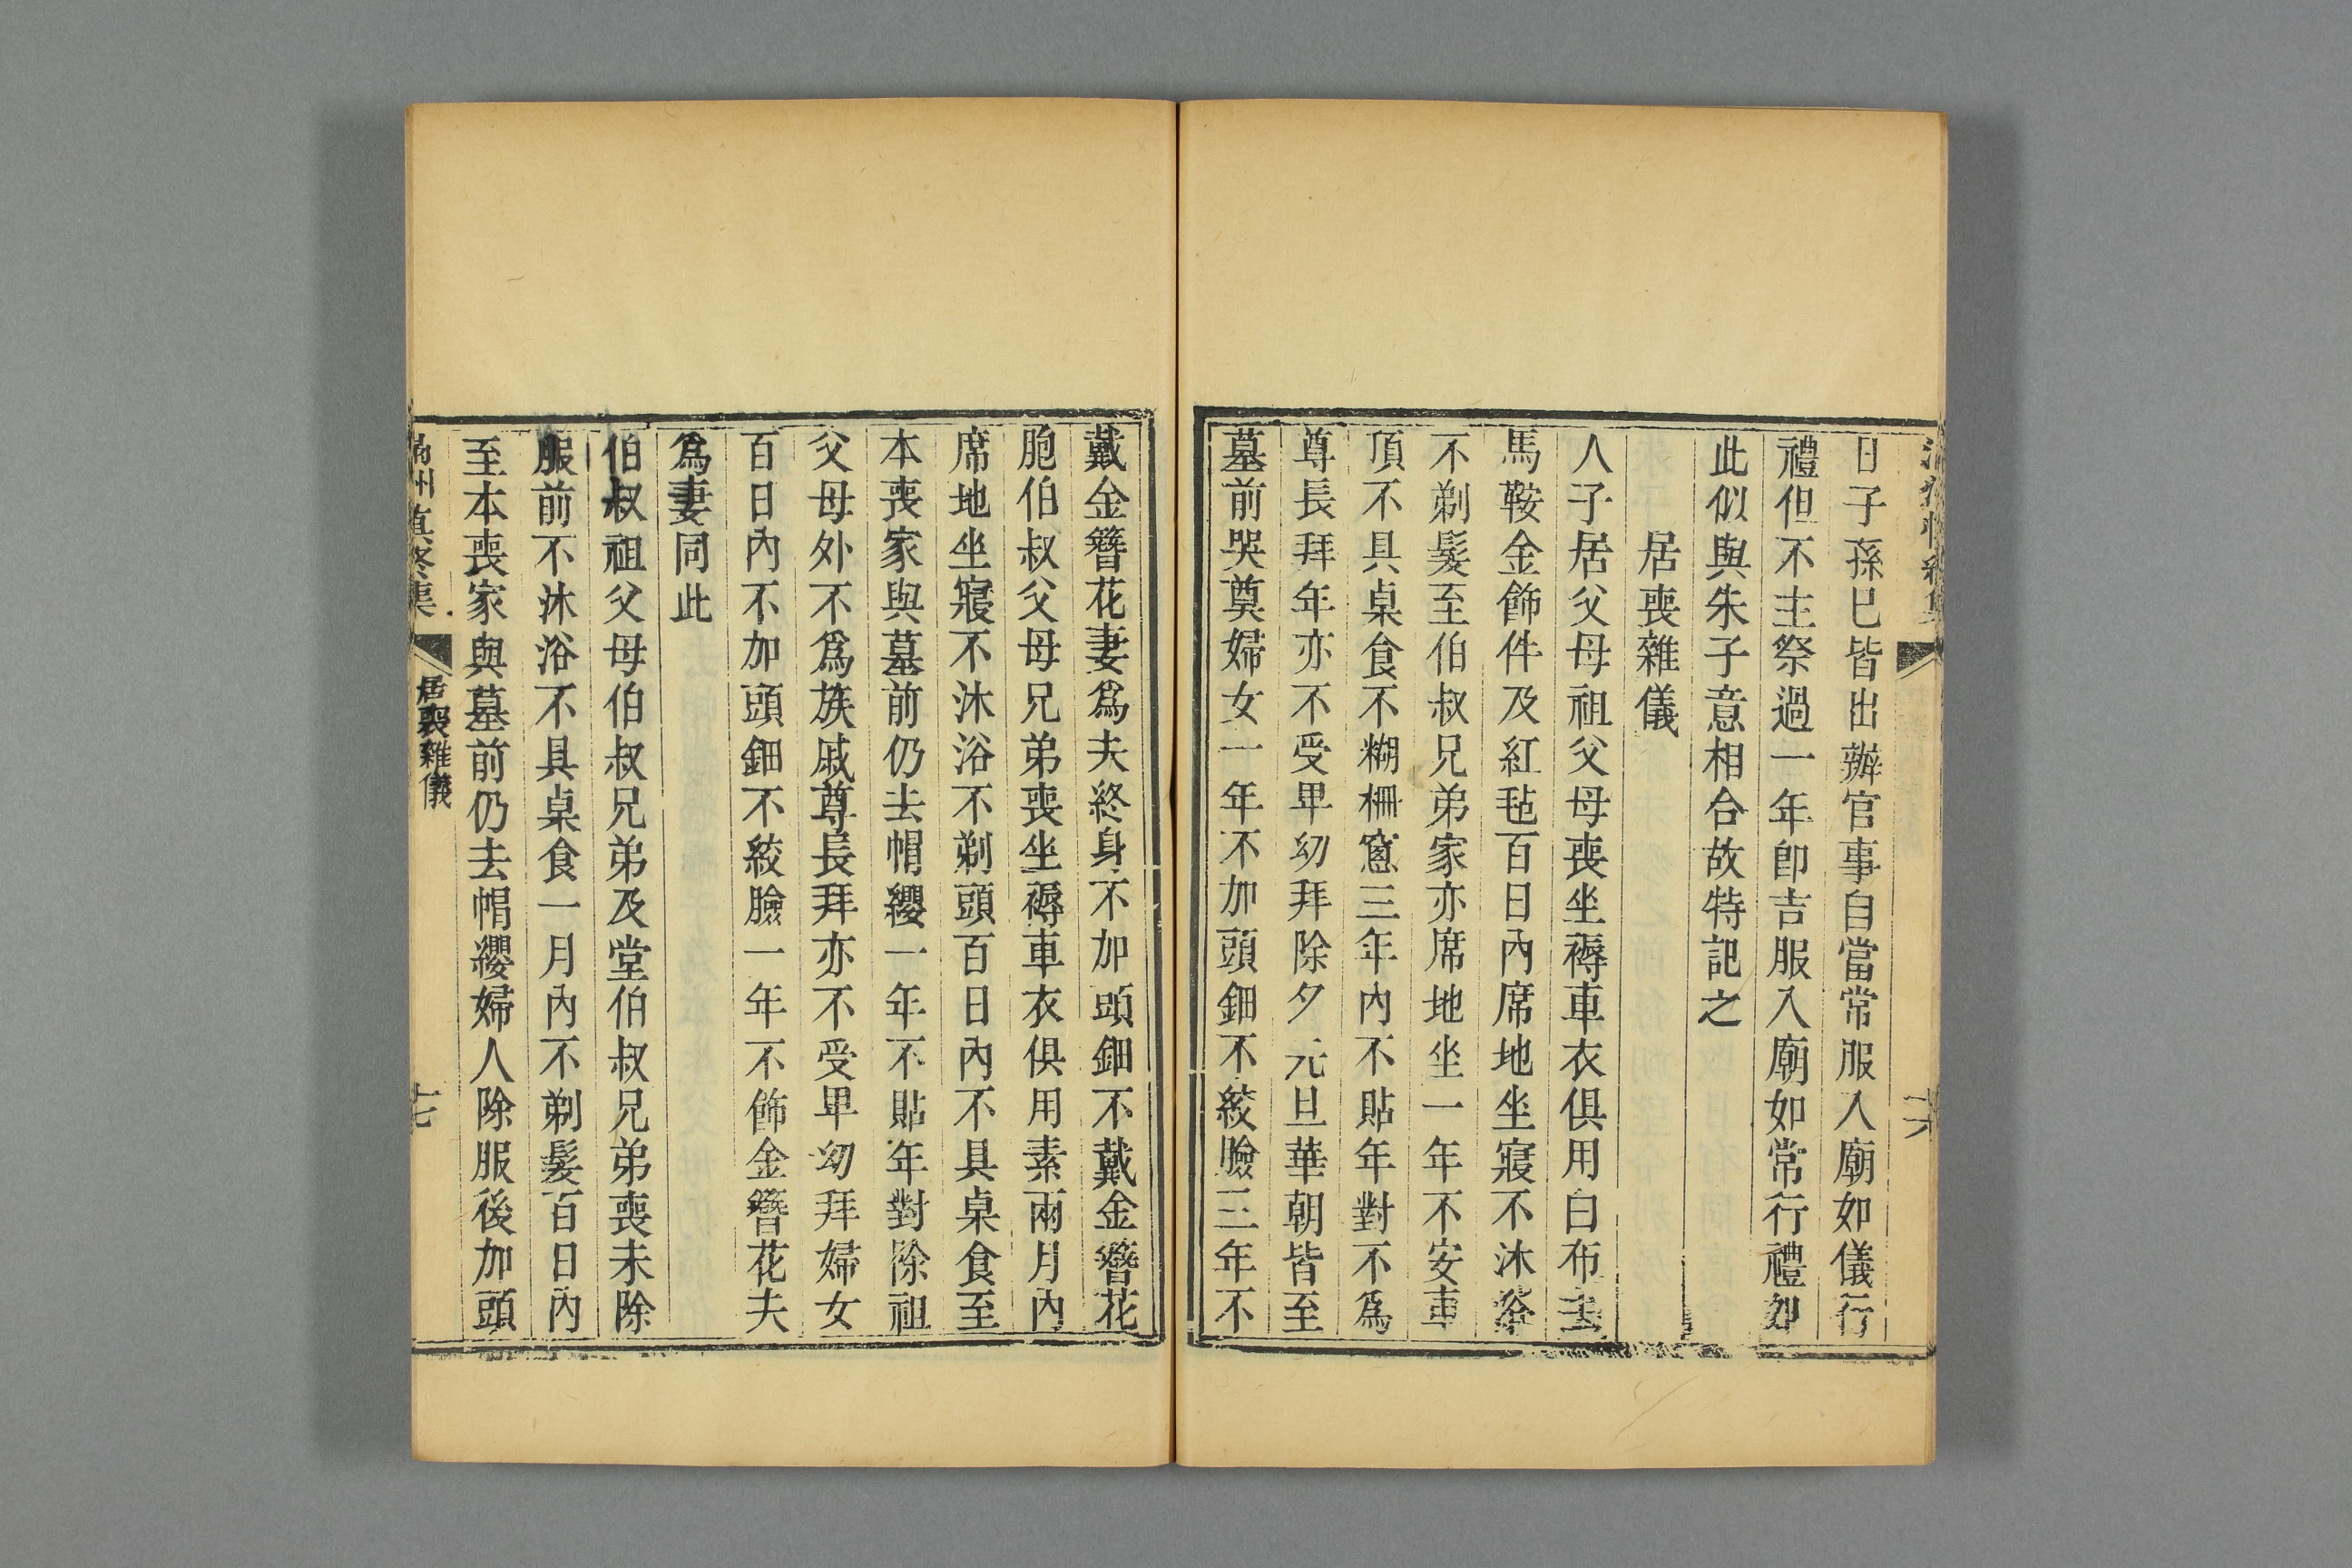 日子孫已皆出辦官事自當常服入廟如儀行
禮但不主祭過一年卽吉服入廟如常行禮如
此似與朱子意相合故特記之
居喪雜儀
人子居父母祖父母喪坐褥車衣俱用白布去
馬鞍金飾件及紅毡百日內席地坐寢不沐浴
不剃髮至伯叔兄弟家亦席地坐一年不安車
頂不具桌食不糊柵窻三年內不貼年對不爲
尊長拜年亦不受卑幼拜除夕元旦華朝皆至
墓前哭奠婦女一年不加頭鈿不絞臉三年不
戴金簪花妻爲夫終身不加頭鈿不戴金簪花
胞伯叔父母兄弟喪坐褥車衣俱用素兩月內
席地坐寢不沐浴不剃頭百日內不具桌食至
本喪家與墓前仍去帽纓一年不貼年對除祖
父母外不爲族戚尊長拜亦不受卑幼拜婦女
百日內不加頭鈿不絞臉一年不飾金簪花夫
爲妻同此
伯叔祖父母伯叔兄弟及堂伯叔兄弟喪未除
服前不沐浴不具桌食一月內不剃髮百日內
至本喪家與墓前仍去帽纓婦人除服後加頭
滿州慎終集
居喪雜儀
十七